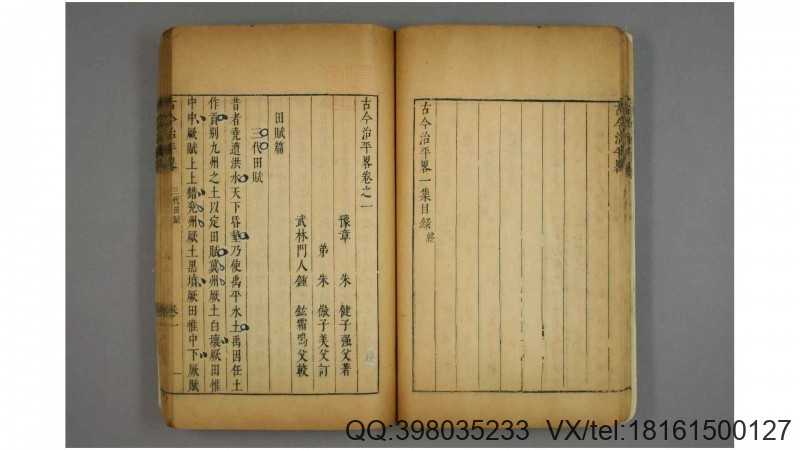 古今治平畧一集目録終
古今治平畧卷之一
豫章 朱 健子强父著
弟 朱 徽子美父訂
武林門人鍾 鋐霜鳴父較
田賦篇
三代田賦
昔者堯遭洪水天下昏墊乃使禹平水土禹因任土
作貢別九州之土以定田賦冀州厥土白壤厥田惟
中中厥賦上上錯兗州厥土黑墳厥田惟中下厥賦
古今治平畧
三代田賦
卷一
一
QQ:398035233 VX/tel:18161500127